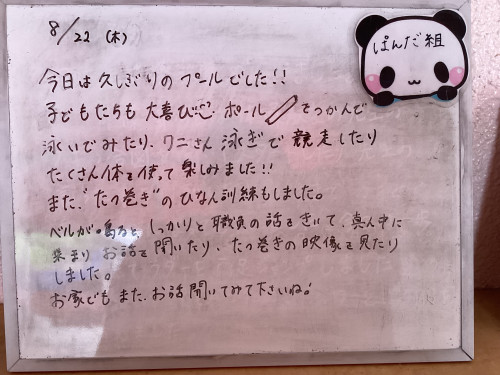 8/22 (木)
ぱんだ組
今日は久しぶりのプールでした!!
子どもたちも大喜び♡ ポール をつかんで
泳いでみたり、ワニさん泳ぎで競走したり
たくさん体を使って楽しみました!!
また、"たつ巻き"のひなん訓練もしました。
ベルが鳴ると、しっかりと職員の話をきいて、真ん中に
集まり お話を聞いたり、たつ巻きの映像を見たり
しました。
お家でも また、お話聞いてみて下さいね!